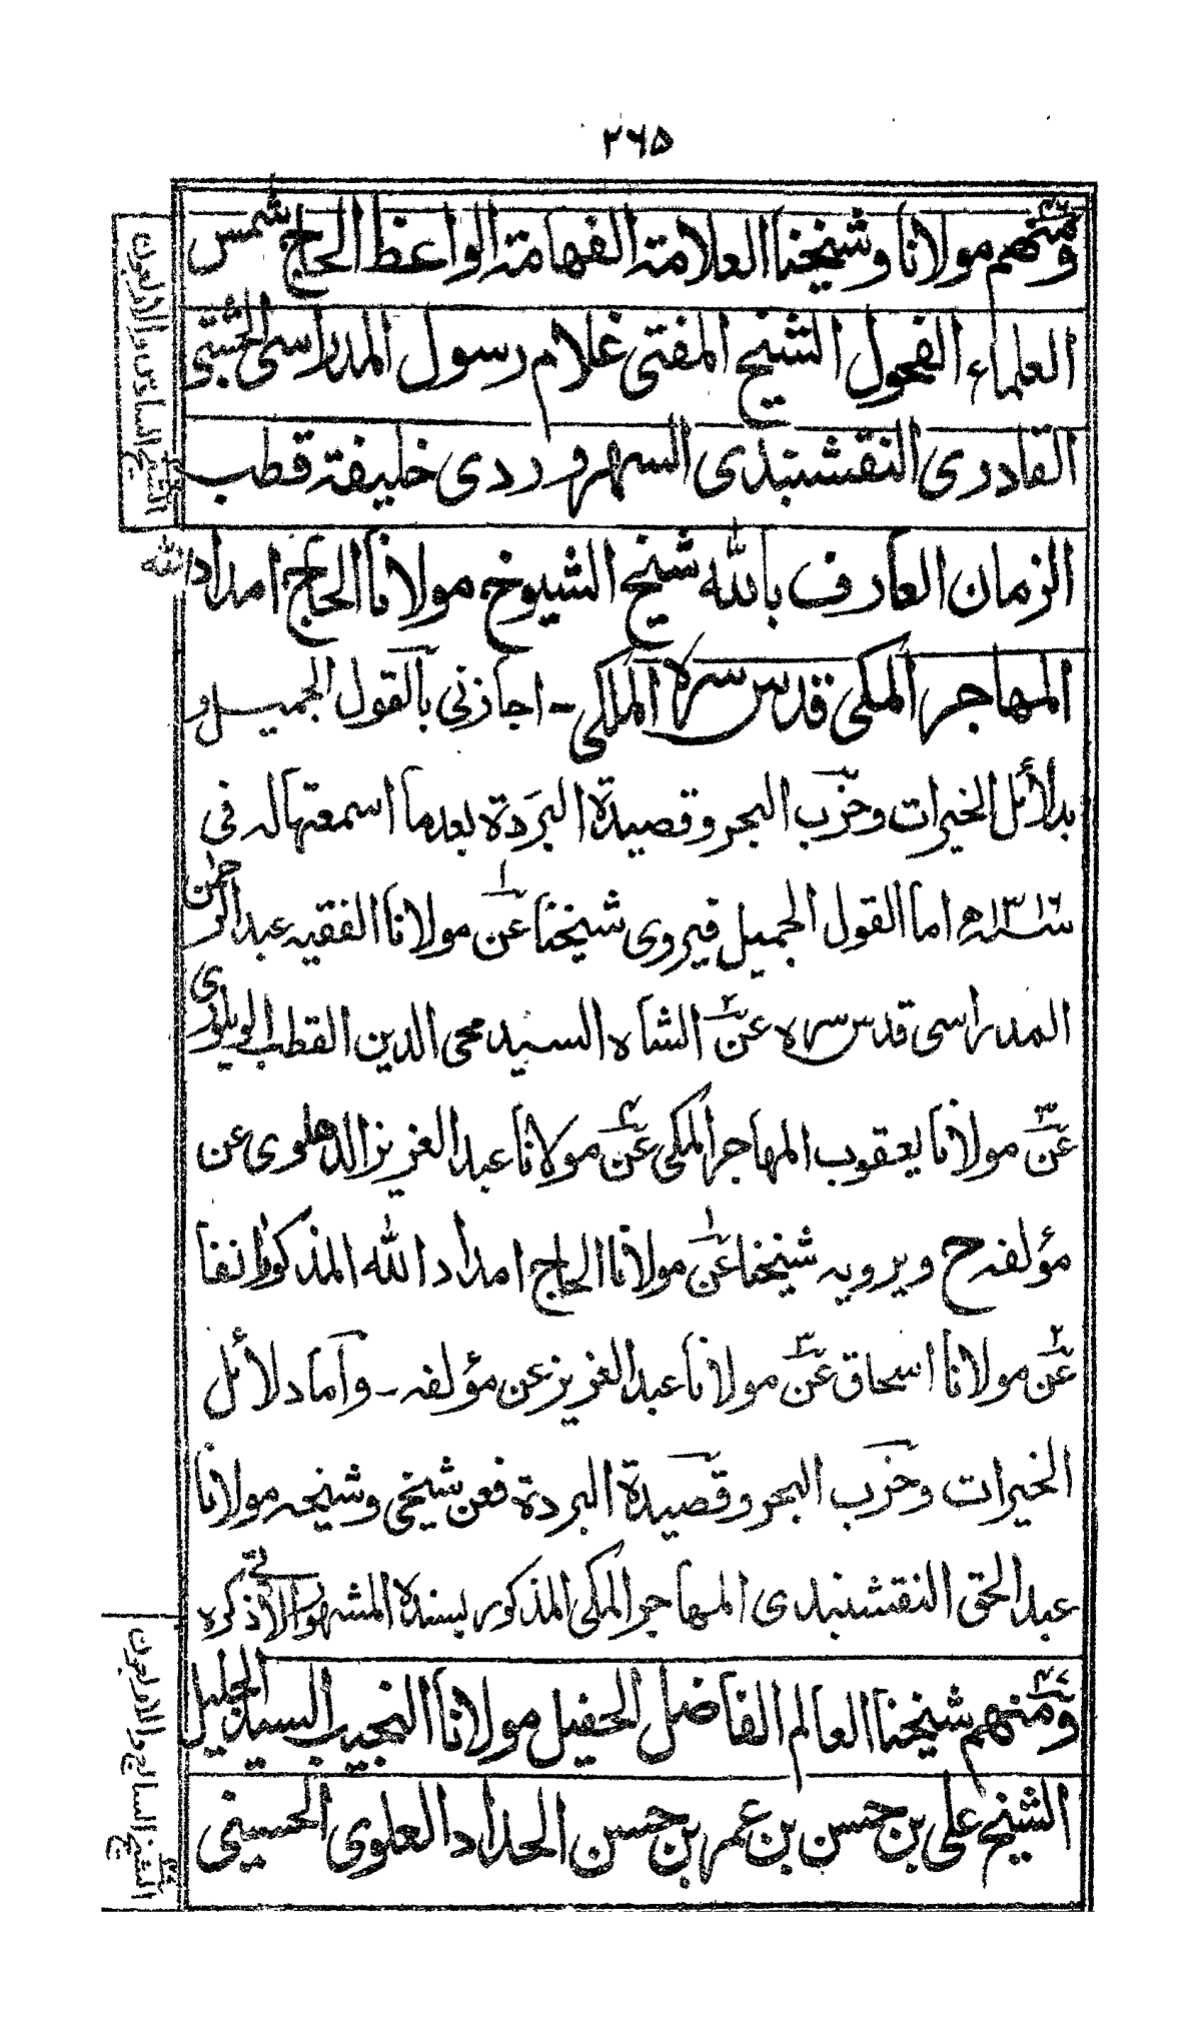 ۲۶۵
ومنهم ۴۶ مولانا وشيخنا العلامة الفهامة الواعظ الحاج شمس
العلماء الفحول الشيخ المفتى غلام رسول المدراسى الچشتى
القادرى النقشبندى السهروردى خليفة قطب
الزمان العارف بالله شيخ الشيوخ مولانا الحاج امداد الله
المهاجر المكى قدس سره الملكى - اجازنى بالقول الجميل و
بدلائل الخيرات وحزب البحر وقصيدة البردة بعدما اسمعتها له فى
سنه ۱۳۱۶ھ اما القول الجميل فيروى شيخنا عن ۱ مولانا الفقيه عبد الرحمن
المدراسى قدس سره عن ۲ الشاه السيد محى الدين القطب الويلورى
عن ۳ مولانا يعقوب المهاجر المكى عن ۴ مولانا عبد العزيز الدهلوى عن
مؤلفه ح ويرويه شيخنا عن ۱ مولانا الحاج امداد الله المذكور انفا
عن ۲ مولانا اسحاق عن ۳ مولانا عبد العزيز عن مؤلفه - وأما دلائل
الخيرات وحزب البحر وقصيدة البردة فعن شيخى وشيخه مولانا
عبد الحق النقشبندى المهاجر المكى المذكور بسنده المشهور الاتى ذكره
ومنهم ۴۷ شيخنا العالم الفاضل الحفيل مولانا النجيب السيد الجليل
الشيخ على بن حسن بن عمر بن حسن الحداد العلوى الحسينى
الشيخ السادس والاربعون
الشيخ السابع والاربعون